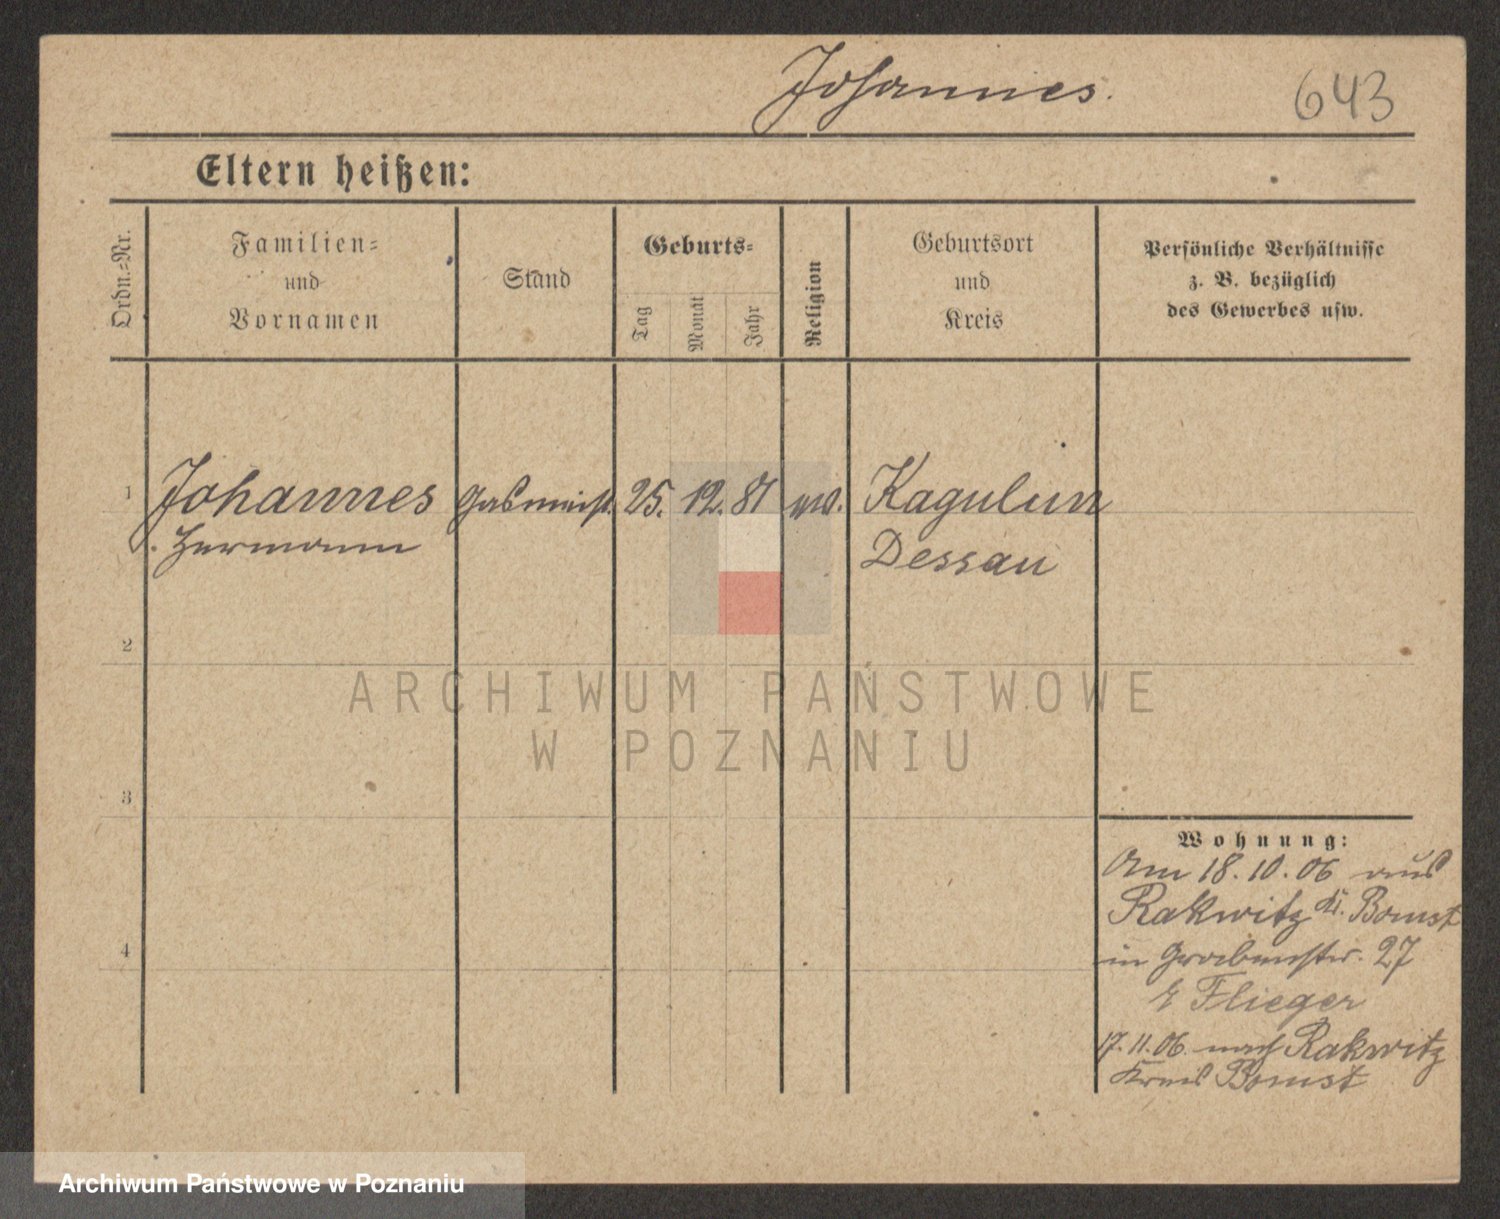 Johannes.
643
Eltern heißen:
Ordn.-Nr.
Familien-
und
Vornamen
Stand
Geburts-
Tag
Monat
Jahr
Religion
Geburtsort
und
Kreis
Persönliche Verhältnisse
z. B. bezüglich
des Gewerbes usw.
1 Johannes Gasmeist. 25. 12. 81 ev. Kagulun
Hermann Dessau
2
3
4
Wohnung:
Am 18.10.06 aus
Rakwitz Kr. Bomst
in Grabenstr. 27
b Flieger
17.11.06 nach Rakwitz
Kreis Bomst
ARCHIWUM PAŃSTWOWE
W POZNANIU
Archiwum Państwowe w Poznaniu